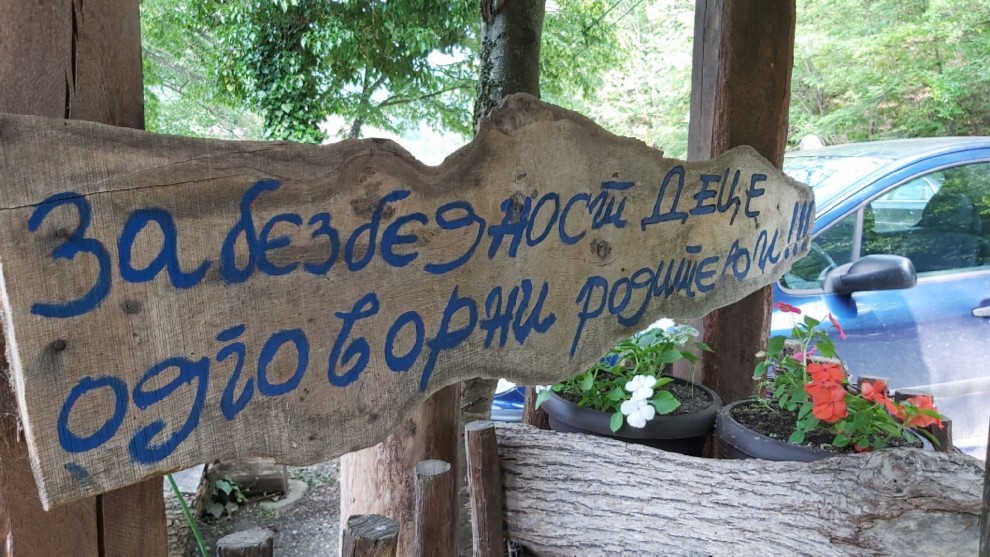 За безбедност деце
одговорни родитељи!!!